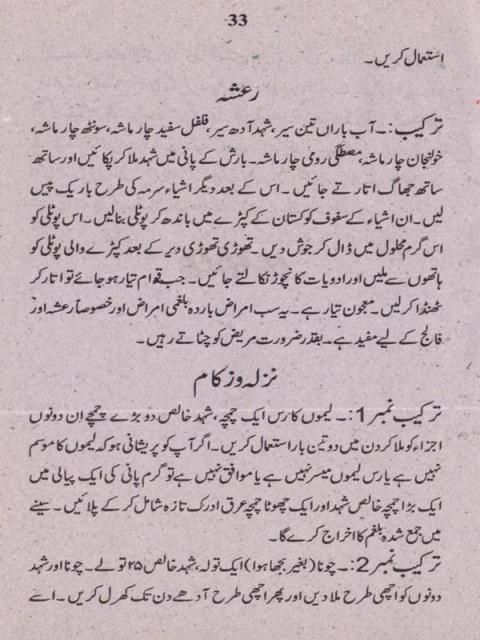 33
استعمال کریں۔
رعشہ
ترکیب:۔ آب باراں تین سیر، شہد آدھ سیر، فلفل سفید چار ماشہ، سونٹھ چار ماشہ،
خولنجان چار ماشہ، مصطگی رومی چار ماشہ۔ بارش کے پانی میں شہد ملا کر پکائیں اور ساتھ
ساتھ جھاگ اتارتے جائیں ۔ اس کے بعد دیگر اشیاء سرمہ کی طرح باریک پیس
لیں۔ ان اشیاء کے سفوف کو کستان کے کپڑے میں باندھ کر پوٹلی بنالیں۔ اس پوٹلی کو
اس گرم محلول میں ڈال کر جوش دیں ۔ تھوڑی تھوڑی دیر کے بعد کپڑے والی پوٹلی کو
ہاتھوں سے ملیں اور ادویات کا نچوڑ نکالتے جائیں۔ جب قوام تیار ہو جائے تو اتار کر
ٹھنڈا کرلیں۔ معجون تیار ہے۔ یہ سب امراض باردہ بلغمی امراض اور خصوصاً رعشہ اور
فالج کے لیے مفید ہے۔ بقدر ضرورت مریض کو چٹاتے رہیں۔
نزلہ و زکام
ترکیب نمبر 1:۔ لیموں کا رس ایک چمچہ، شہد خالص دو بڑے چمچے ان دونوں
اجزاء کو ملا کر دن میں دو تین بار استعمال کریں۔ اگر آپ کو پریشانی ہو کہ لیموں کا موسم
نہیں ہے یا رس لیموں میسر نہیں ہے یا موافق نہیں ہے تو گرم پانی کی ایک پیالی میں
ایک بڑا چمچہ خالص شہد اور ایک چھوٹا چمچہ عرق ادرک تازہ شامل کر کے پلائیں۔ سینے
میں جمع شدہ بلغم کا اخراج کرے گا۔
ترکیب نمبر 2:۔ چونا (بغیر بجھا ہوا) ایک تولہ، شہد خالص ۲۵ تولے۔ چونا اور شہد
دونوں کو اچھی طرح ملا دیں اور پھر اچھی طرح آدھے دن تک کھرل کریں ۔ اسے